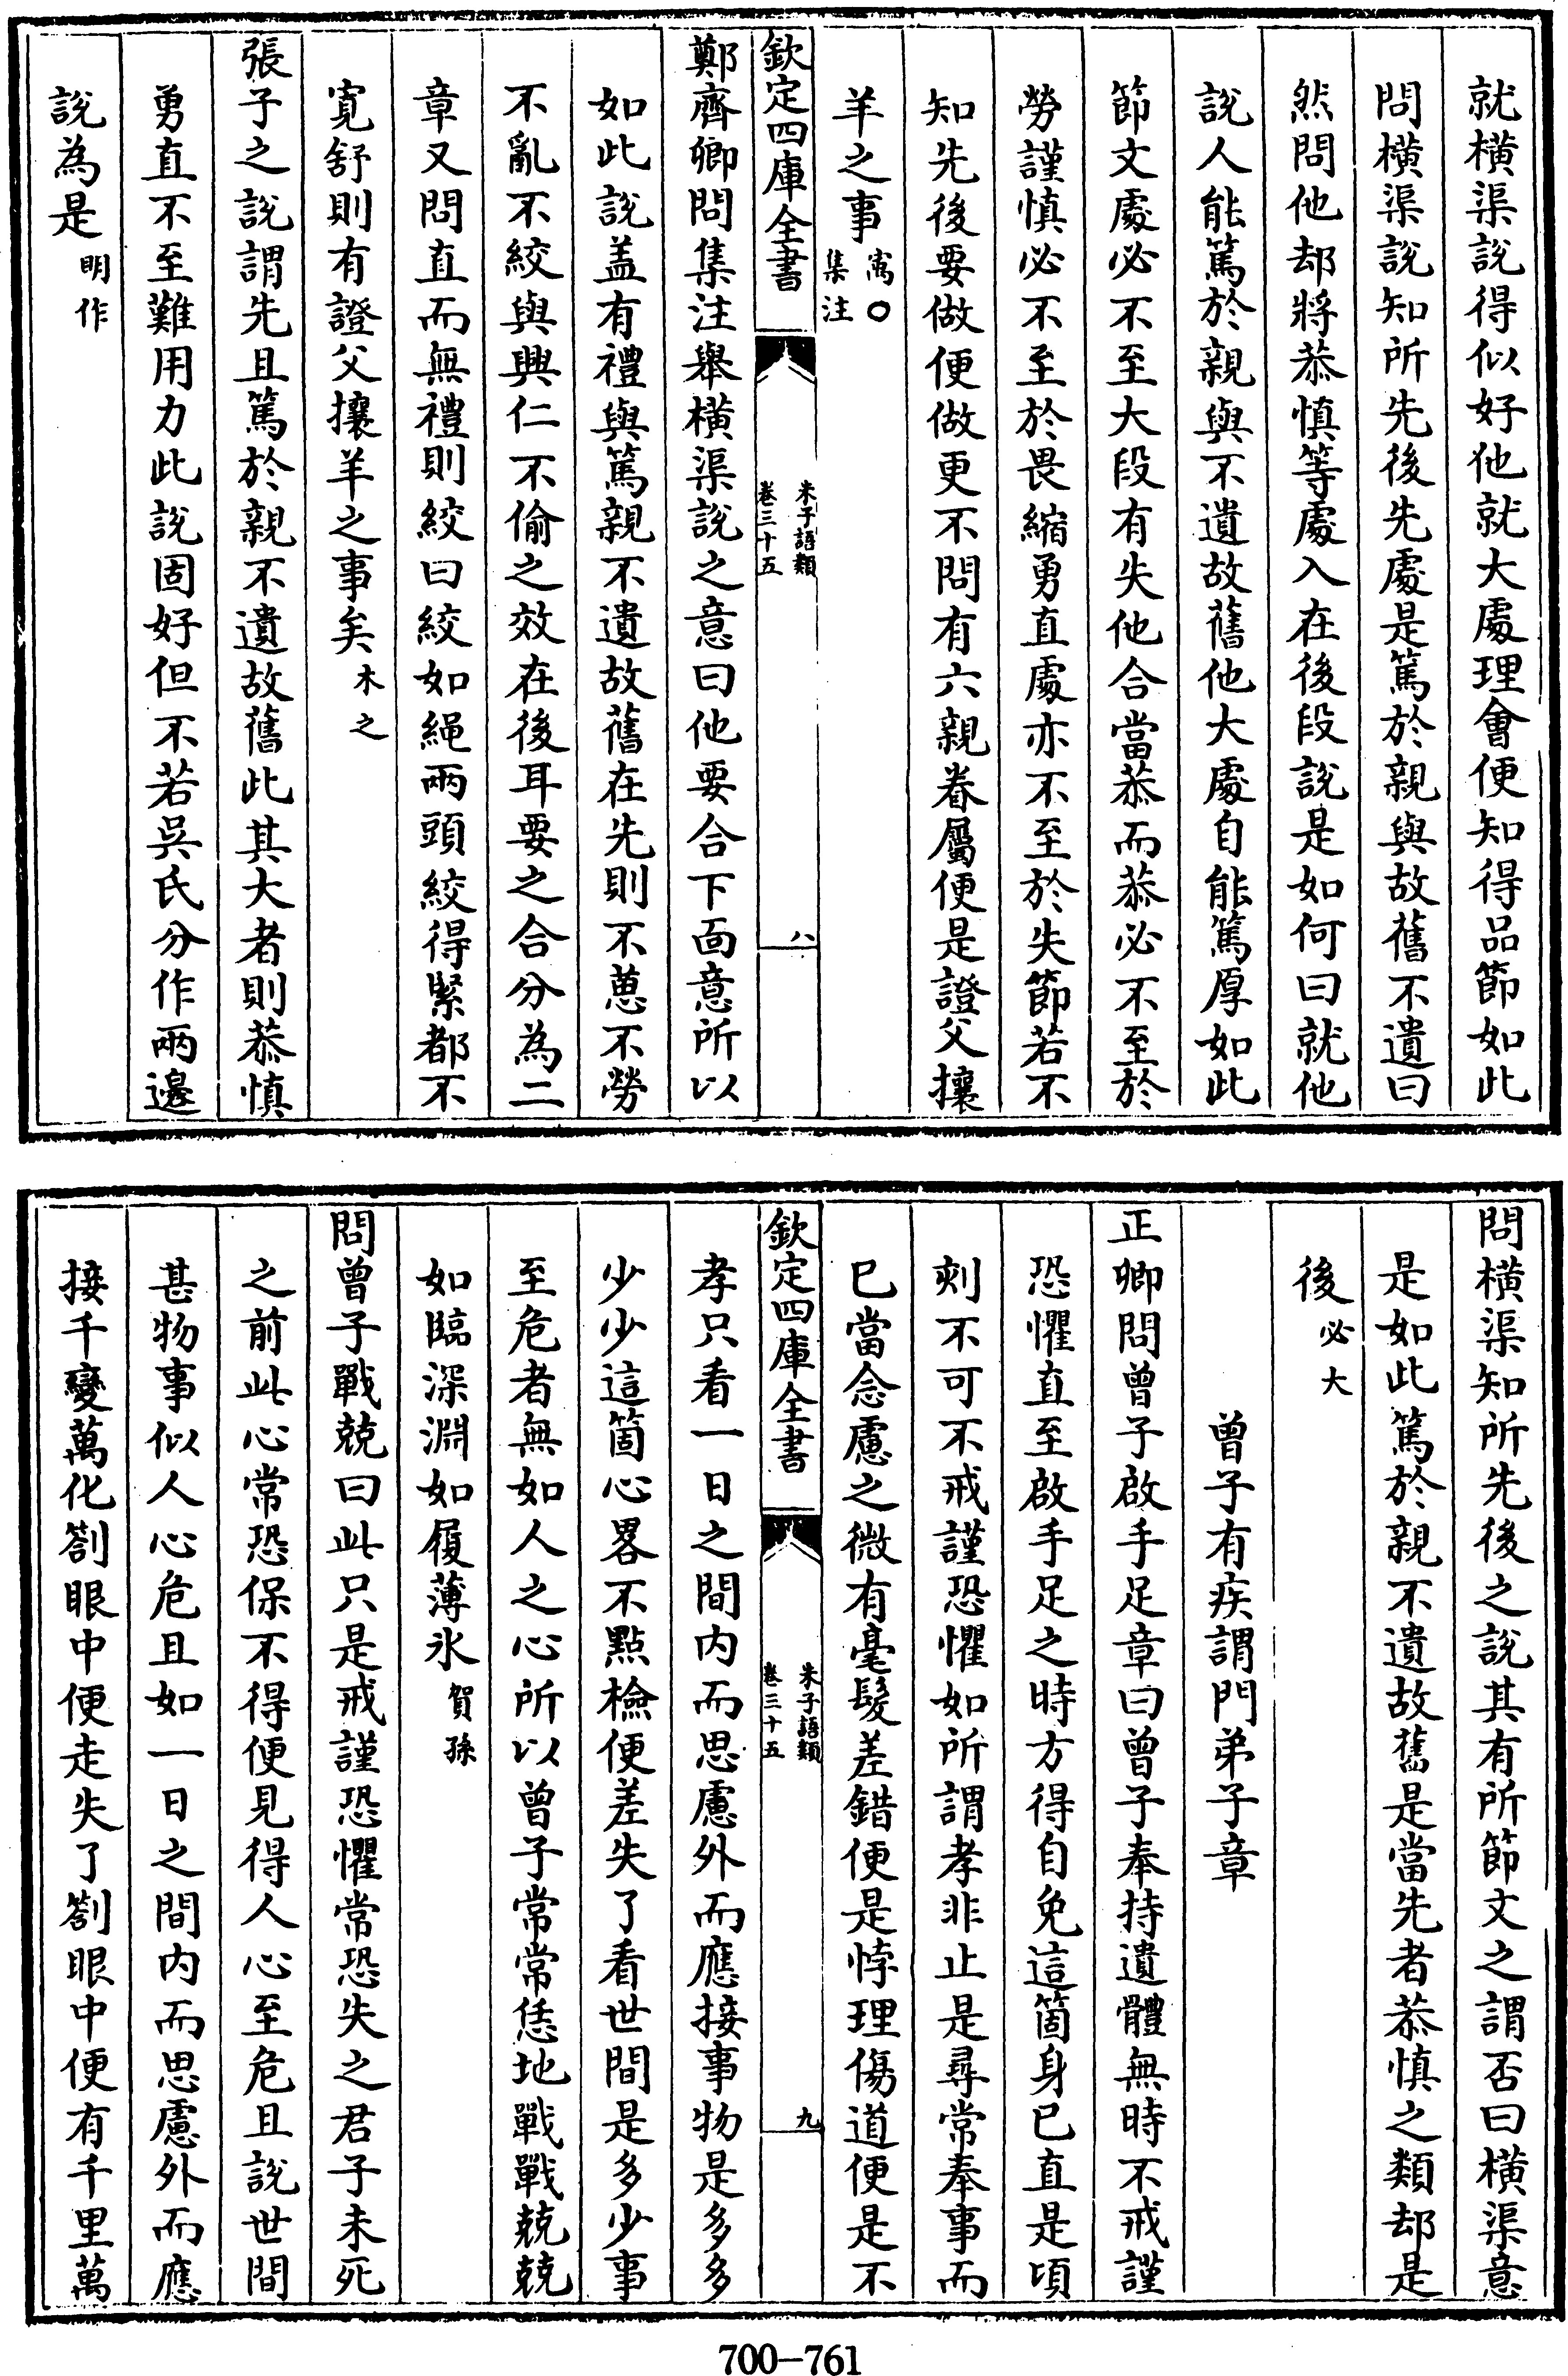 就橫渠說得似好他就大處理會便知得品節如此
問橫渠說知所先後先處是篤於親與故舊不遺曰
然問他却將恭慎等處入在後段說是如何曰就他
說人能篤於親與不遺故舊他大處自能篤厚如此
節文處必不至大段有失他合當恭而恭必不至於
勞謹慎必不至於畏縮勇直處亦不至於失節若不
知先後要做便做更不問有六親眷屬便是證父攘
羊之事㝢○集注
欽定四庫全書
朱子語類
卷三十五
八
鄭齊卿問集注舉橫渠說之意曰他要合下面意所以
如此說盖有禮與篤親不遺故舊在先則不葸不勞
不亂不絞與興仁不偷之效在後耳要之合分為二
章又問直而無禮則絞曰絞如繩兩頭絞得緊都不
寛舒則有證父攘羊之事矣木之
張子之說謂先且篤於親不遺故舊此其大者則恭慎
勇直不至難用力此說固好但不若吳氏分作兩邊
說為是明作
問橫渠知所先後之說其有所節文之謂否曰橫渠意
是如此篤於親不遺故舊是當先者恭慎之類却是
後必大
曾子有疾謂門弟子章
正卿問曾子啟手足章曰曾子奉持遺體無時不戒謹
恐懼直至啟手足之時方得自免這箇身已直是頃
刻不可不戒謹恐懼如所謂孝非止是尋常奉事而
已當念慮之微有毫髮差錯便是悖理傷道便是不
欽定四庫全書
朱子語類
卷三十五
九
孝只看一日之間内而思慮外而應接事物是多多
少少這箇心畧不點檢便差失了看世間是多少事
至危者無如人之心所以曾子常常恁地戰戰兢兢
如臨深淵如履薄氷賀孫
問曾子戰兢曰此只是戒謹恐懼常恐失之君子未死
之前此心常恐保不得便見得人心至危且說世間
甚物事似人心危且如一日之間内而思慮外而應
接千變萬化劄眼中便走失了劄眼中便有千里萬
700-761